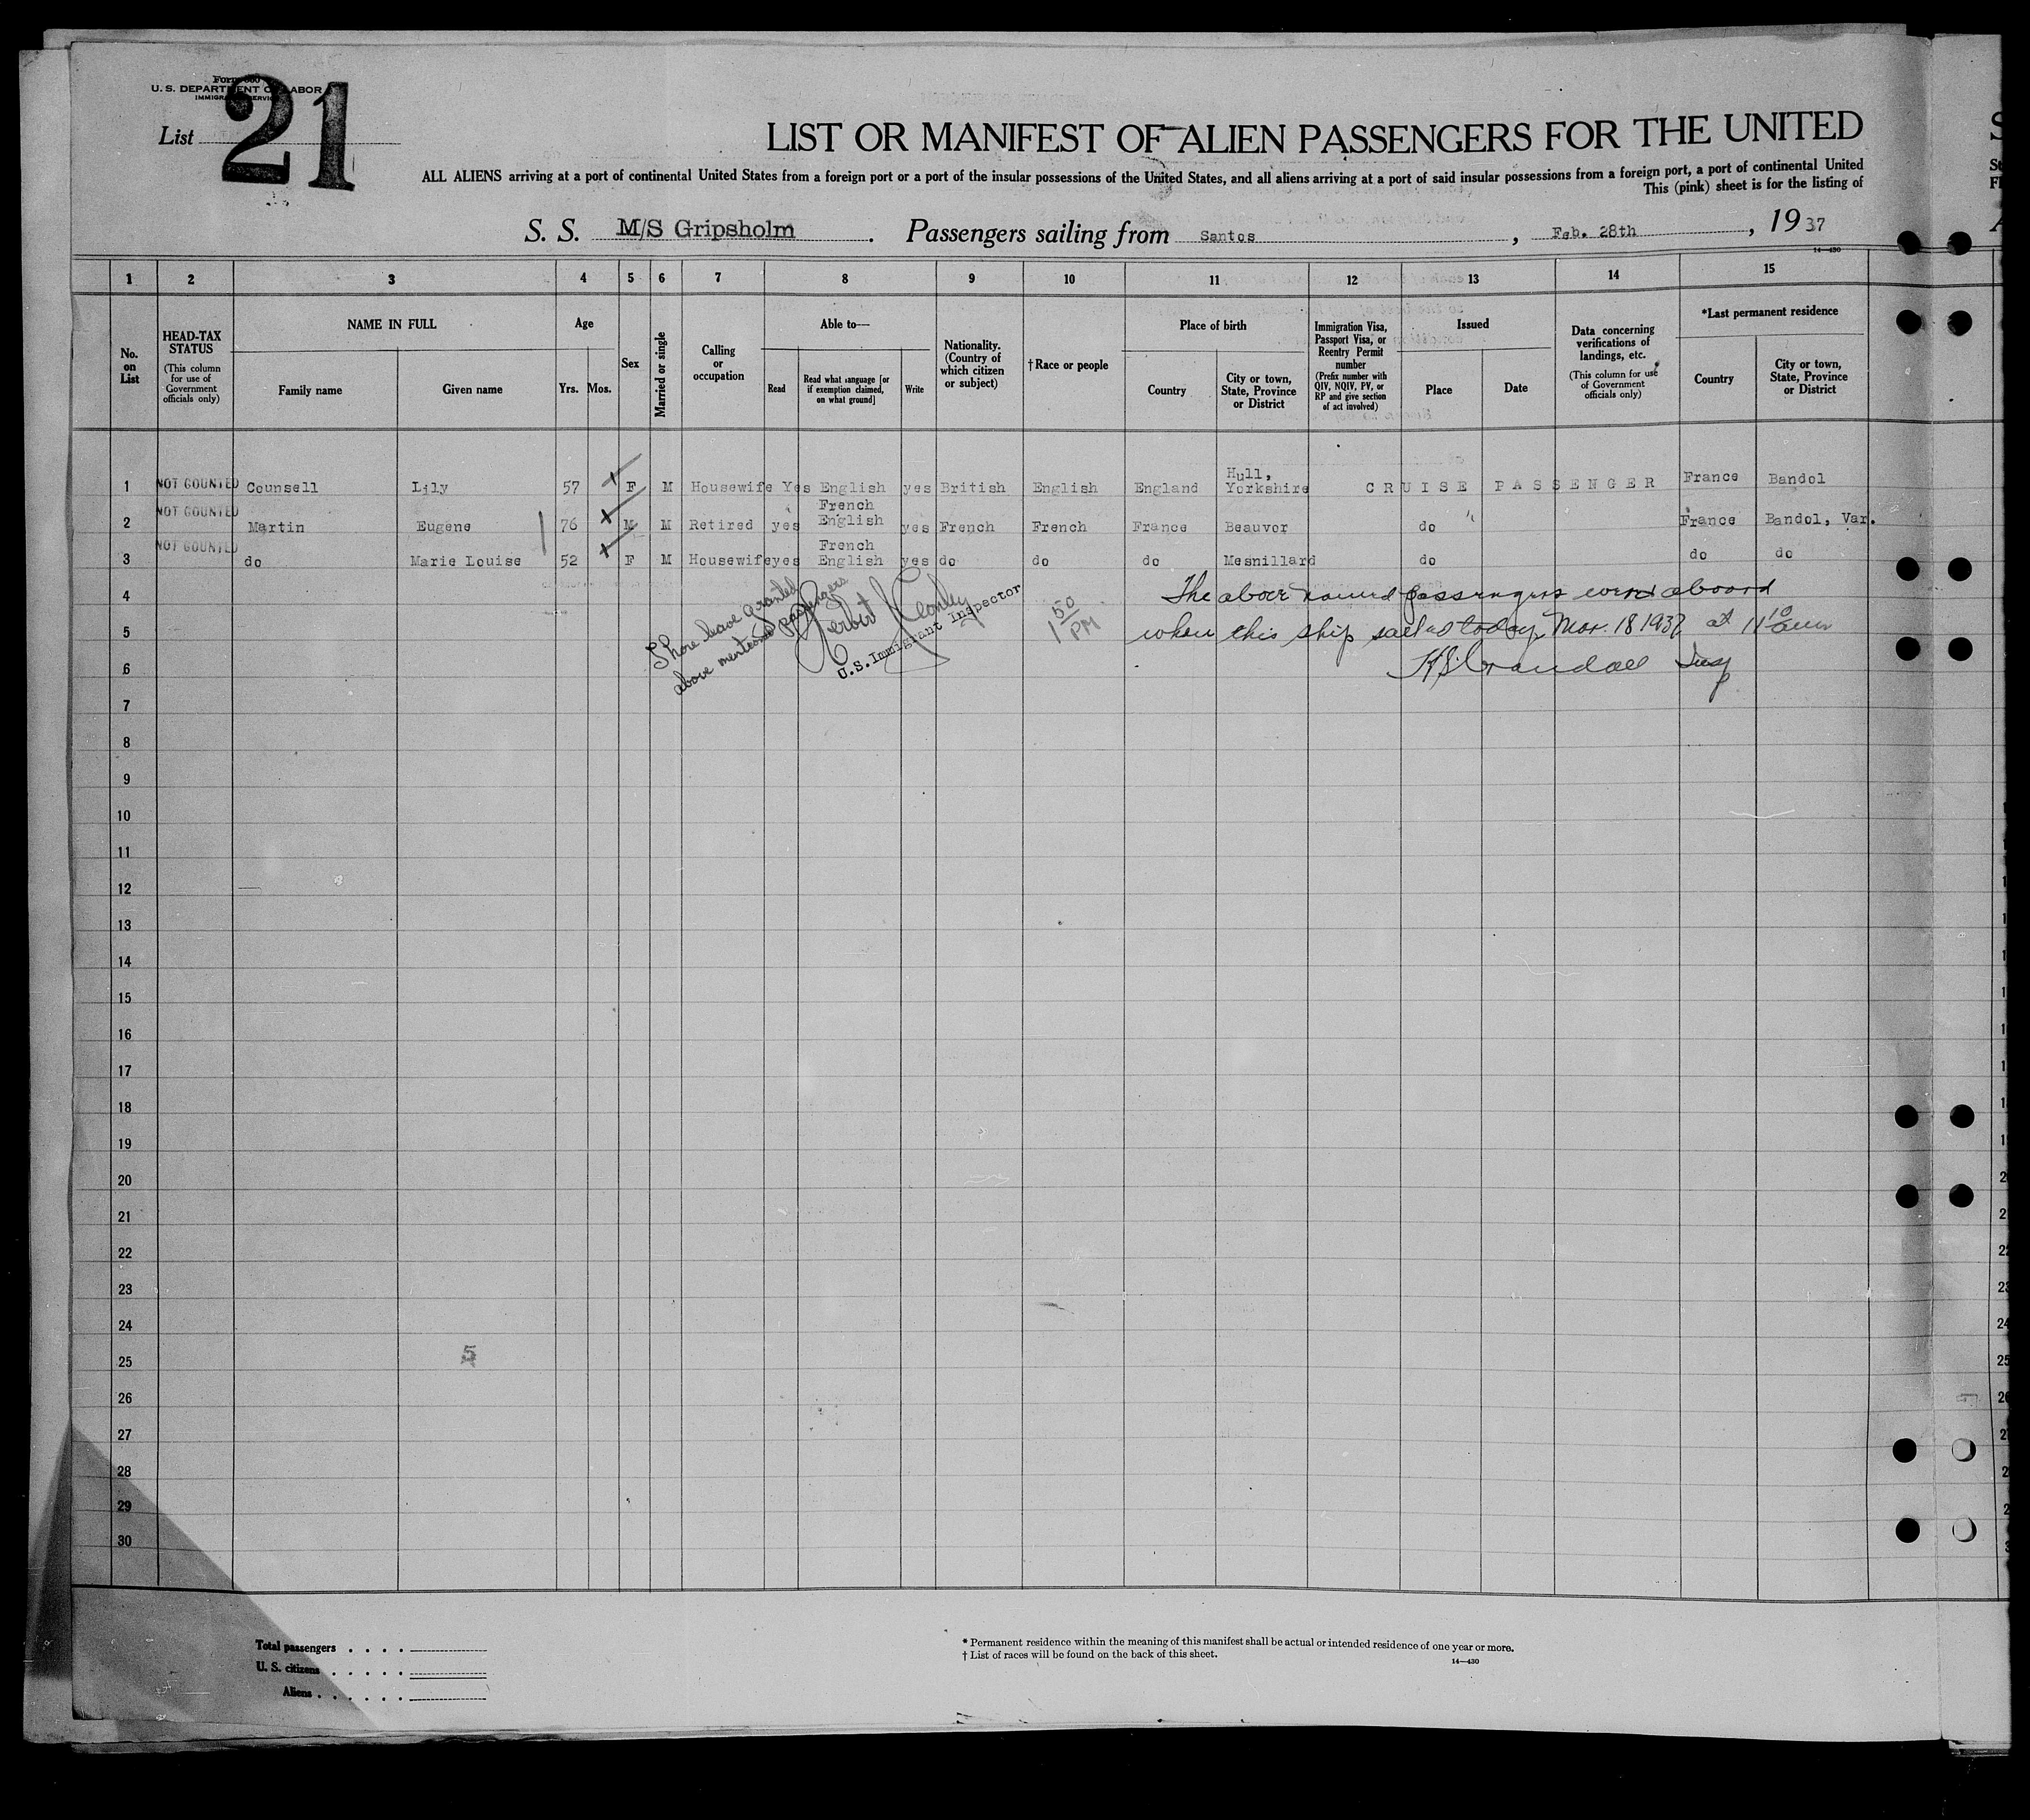 Form 630
U. S. DEPARTMENT OF LABOR
IMMIGRATION SERVICE
List 21
LIST OR MANIFEST OF ALIEN PASSENGERS FOR THE UNITED
ALL ALIENS arriving at a port of continental United States from a foreign port or a port of the insular possessions of the United States, and all aliens arriving at a port of said insular possessions from a foreign port, a port of continental United
This (pink) sheet is for the listing of
S. S. M/S Gripsholm. Passengers sailing from Santos, Feb. 28th, 1937
14—430
1 2 3 4 5 6 7 8 9 10 11 12 13 14 15
No. on List
HEAD-TAX STATUS (This column for use of Government officials only)
NAME IN FULL
Family name Given name
Age
Yrs. Mos.
Sex
Married or single
Calling or occupation
Able to—
Read
Read what language [or if exemption claimed, on what ground]
Write
Nationality. (Country of which citizen or subject)
†Race or people
Place of birth
Country
City or town, State, Province or District
Immigration Visa, Passport Visa, or Reentry Permit number (Prefix number with QIV, NQIV, PV, or RP and give section of act involved)
Issued
Place Date
Data concerning verifications of landings, etc. (This column for use of Government officials only)
*Last permanent residence
Country
City or town, State, Province or District
1 NOT COUNTED Counsell Lily 57 F M Housewife Yes English yes British English England Hull, Yorkshire CRUISE PASSENGER France Bandol
2 NOT COUNTED Martin Eugene 76 M M Retired yes French English yes French French France Beauvor do France Bandol, Var.
3 NOT COUNTED do Marie Louise 52 F M Housewife yes French English yes do do do Mesnillard do do do
4
5
6
Shore leave granted
above mentioned passengers
U.S. Immigrant Inspector
1 50 PM
The above named passengers were aboard
when this ship sailed today, Mar. 18 1937 at 11 10 am
Crandall Insp
7
8
9
10
11
12
13
14
15
16
17
18
19
20
21
22
23
24
25
5
26
27
28
29
30
Total passengers . . . .
U. S. citizens . . . . .
Aliens . . . . . .
* Permanent residence within the meaning of this manifest shall be actual or intended residence of one year or more.
† List of races will be found on the back of this sheet.
14—430